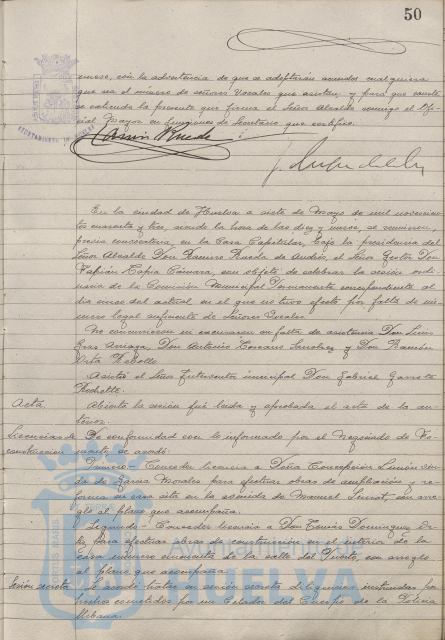 50
curso, con la advertencia de que se adoptarán acuerdos cualquiera
que sea el número de señores Vocales que asistan, y para que conste
se extiende la presente que firma el Señor Alcalde conmigo el Ofi-
cial Mayor en funciones de Secretario que certifico.
AYUNTAMIENTO DE HUELVA
Ramiro Rueda
En la ciudad de Huelva a siete de Mayo de mil novecien-
tos cuarenta y tres, siendo la hora de las diez y nueve, se reunieron,
previa convocatoria, en la Casa Capitular, bajo la presidencia del
Señor Alcalde Don Ramiro Rueda de Andrés, el Señor Gestor Don
Fabián Tapia Cámara, con objeto de celebrar la sesión ordi-
naria de la Comisión Municipal Permanente correspondiente al
día cinco del actual en el que no tuvo efecto por falta de nú-
mero legal suficiente de Señores Vocales.
No concurrieron ni excusaron su falta de asistencia Don Luis
Don Antonio Sanchez y Don Ramón
Asistió el Señor Interventor municipal Don Gabriel Garrote
Acta. Abierta la sesión fué leida y aprobada el acta de la an-
terior.
Licencias de De conformidad con lo informado por el Negociado de Fo-
construccion mento, se acordó:
Primero.- Conceder licencia a Doña Concepción viu-
da de Garcia Morales para efectuar obras de ampliación y re-
forma en casa sita en la avenida de Manuel Siurot, con arre-
glo al plano que acompaña.
Segundo.- Conceder licencia a Don Tomás Dominguez
para efectuar obras de construcción en el interior de la
casa número cincuenta de la calle del Puerto, con arreglo
al plano que acompaña.
Sesión secreta Se acordó tratar en sesión secreta diligencias instruidas por
hechos cometidos por un Celador del Cuerpo de la Policia
Urbana.
HUELVA